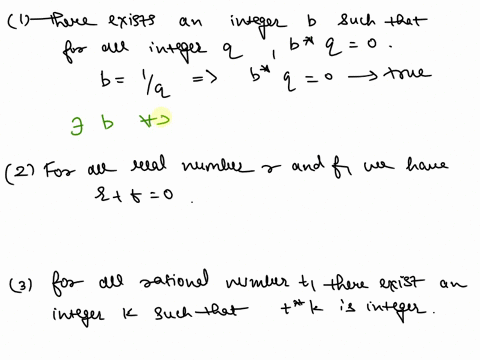 (1) there exists an integer b such that
for all integer q, b* q = 0.
b = 1/q => b* q = 0 → true
∃ b ∀
(2) For all real number r and f, we have
r + f = 0.
(3) for all rational number t, there exist an
integer k such that t*k is integer.